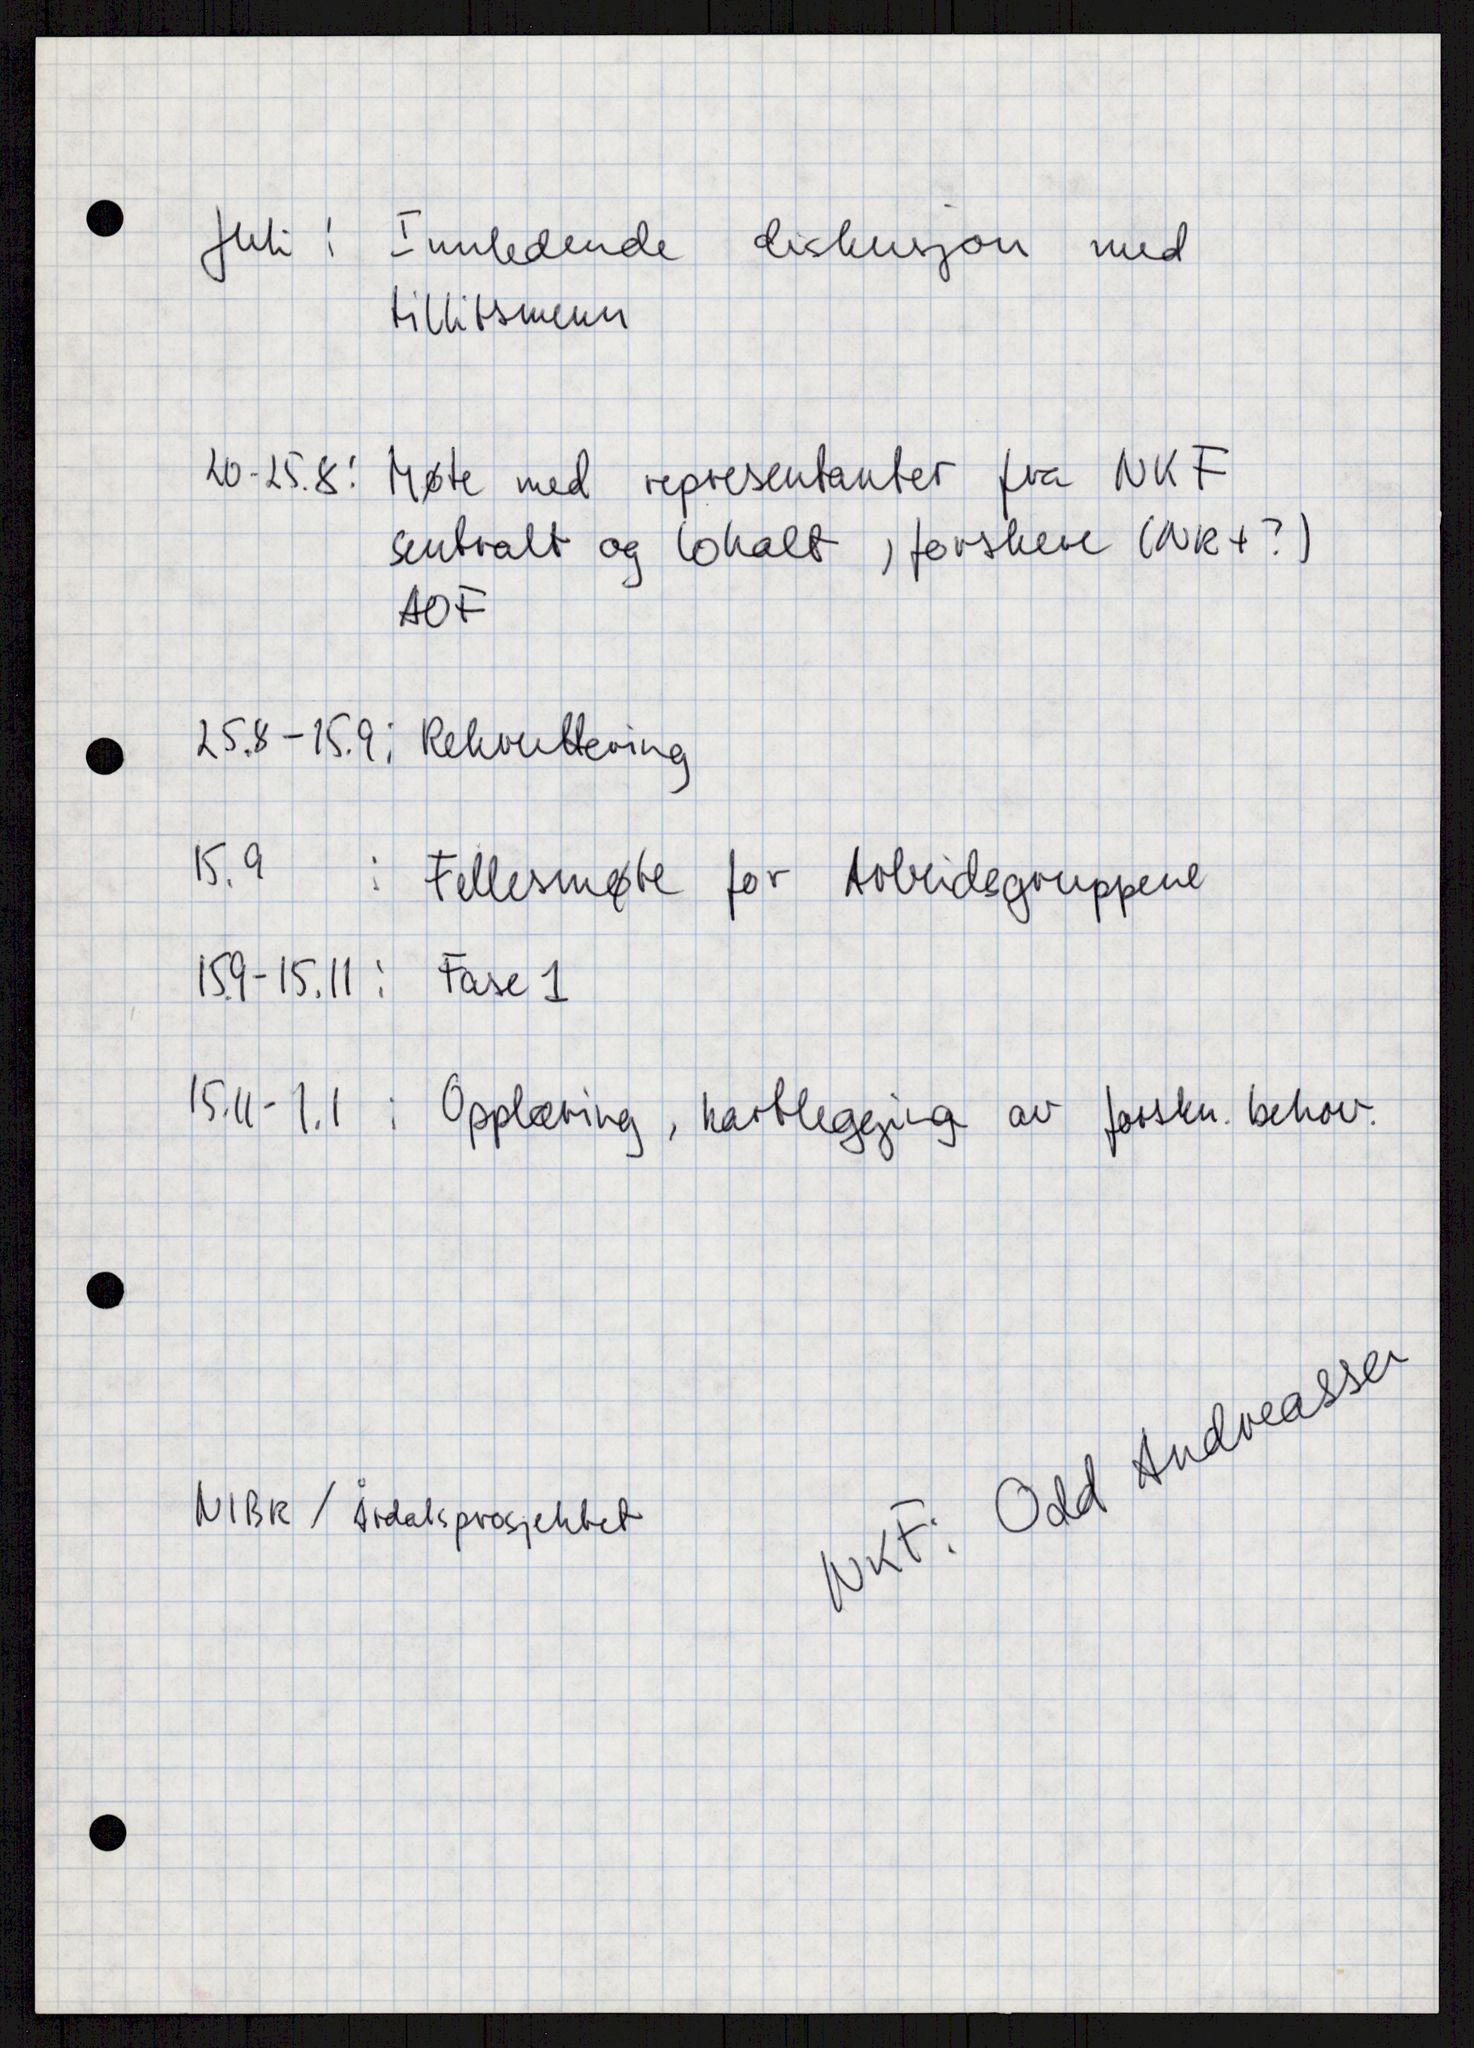 Juli : Innledende diskusjon med
tillitsmenn
20-25.8: Møte med representanter fra NKF
sentralt og lokalt, forskere (NR+?)
AOF
25.8-15.9: Rekruttering
15.9 : Fellesmøte for Arbeidsgruppene
15.9-15.11: Fase 1
15.11-1.1 : Opplæring, kartlegging av forskn. behov.
NIBR / Årdalsprosjektet
NKF: Odd Andreassen